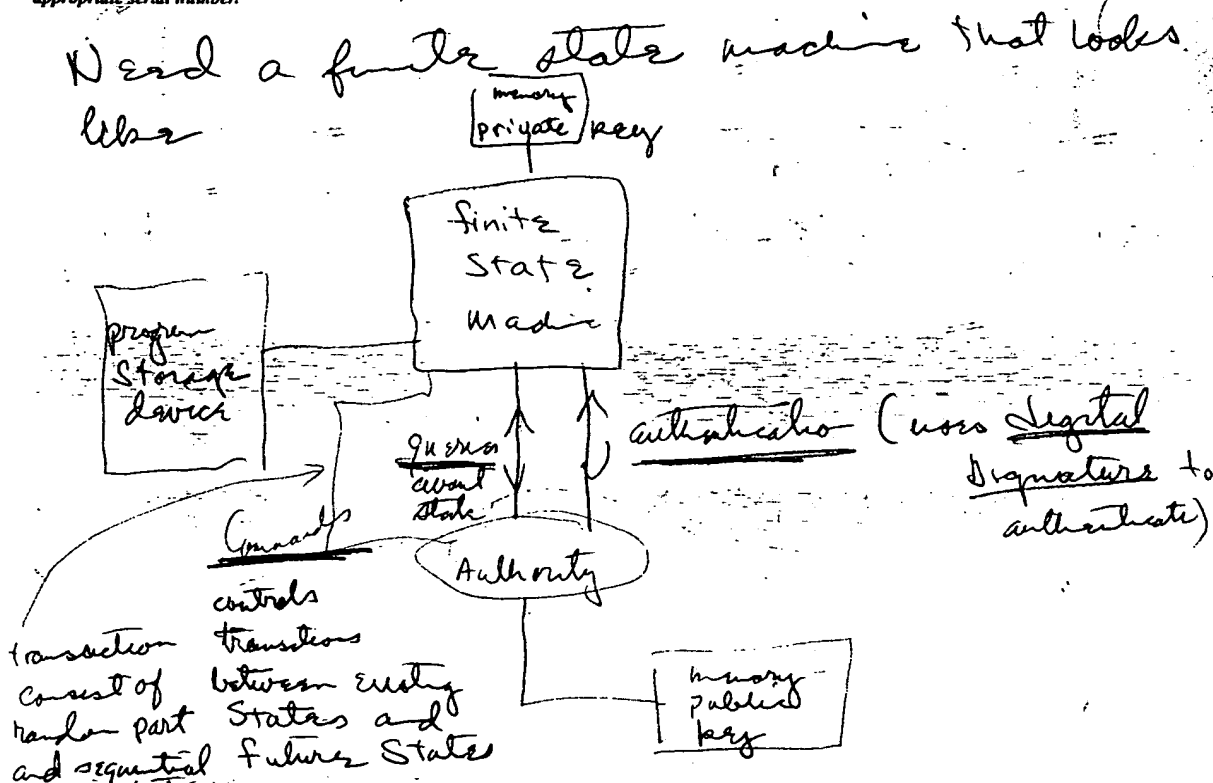 appropriate serial number.
Need a finite state machine that looks
like
memory
private key
finite
State
machine
program
Storage
device
queries
about
state
authentication (uses digital
signature to
authenticate)
Commands
Authority
controls
transitions
between existing
States and
future States
transaction
consist of
random part
and sequential
memory
public
key